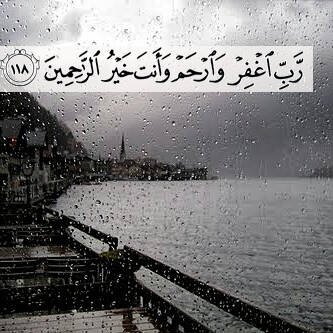 رَّبِّ ٱغْفِرْ وَٱرْحَمْ وَأَنتَ خَيْرُ ٱلرَّٰحِمِينَ ١١٨